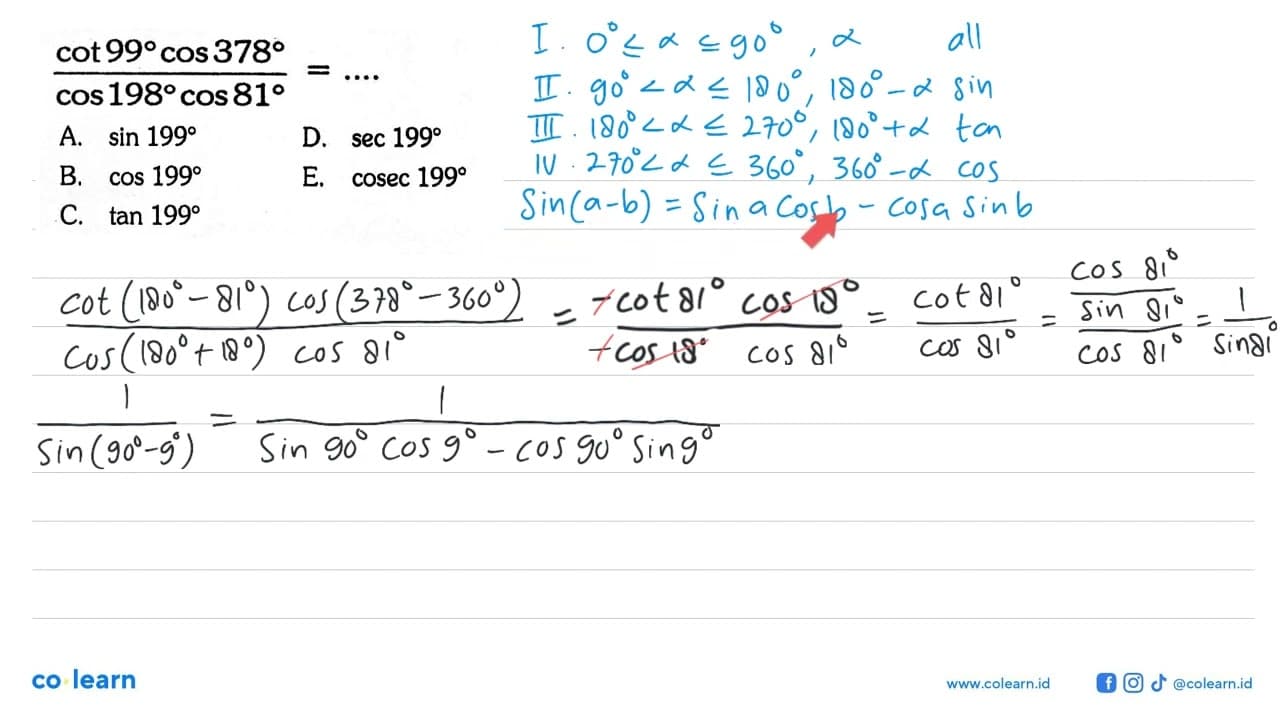 cot 99° cos 378° / cos 198° cos 81° = ....
A. sin 199° D. sec 199°
B. cos 199° E. cosec 199°
C. tan 199°
I. 0° ≤ α ≤ 90°, α all
II. 90° < α ≤ 180°, 180° - α sin
III. 180° < α ≤ 270°, 180° + α tan
IV. 270° < α ≤ 360°, 360° - α cos
Sin(a-b) = Sin a Cos b - cos a sin b
cot(180° - 81°) cos(378° - 360°) / cos(180° + 18°) cos 81° = -cot 81° cos 18° / -cos 18° cos 81° = cot 81° / cos 81° = cos 81° / sin 81° / cos 81° = 1 / sin 81°
1 / Sin(90° - 9°) = 1 / Sin 90° cos 9° - cos 90° Sin 9°
co learn
www.colearn.id @colearn.id